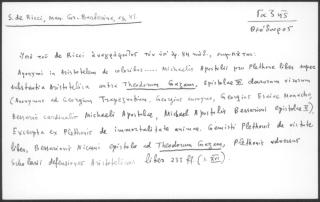 S. de Ricci, man. Gr. Barberine, cg 41.
Γαζῆς
Θεόδωρος
Ὑπὸ τοῦ de Ricci ἀναγράφεται τὸν ὑπ' ἀρ. 84 κώδ., συμμικτος:
Anonymi in Aristotelem de coloribus ..... Michaelis Apostoli pro Plethone liber super
substantia Aristotelica contra Theodorum Gazam, epistolae diversorum virorum
(Anonymi ad Georgium Trapezuntium, Georgius
Bessarioni cardinali Michaelis Apostoli, Michael Apostolis Bessarioni epistolae
Excerpta ex Plethonis de immortalitate animae. Gemisti Plethonis de virtute
liber, Bessarionis Nicaeni epistola ad Theodorum Gazam, Plethonis adversus
Scholarii defensiones Aristotelicas liber 233 ff